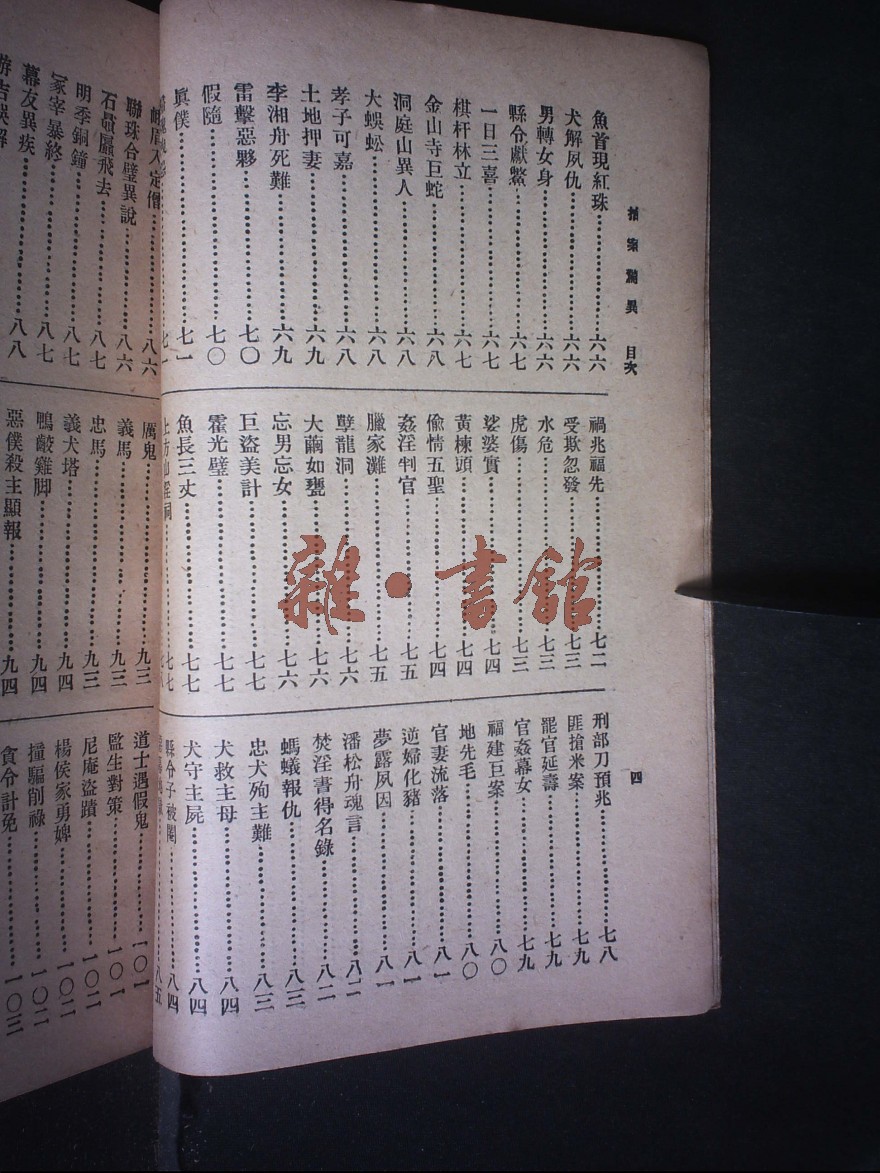 拍案驚異 目次
四
魚首現紅珠……六六
犬解夙仇……六六
男轉女身……六六
縣令獻鱉……六七
一日三喜……六七
棋杆林立……六七
金山寺巨蛇……六八
洞庭山異人……六八
大蜈蚣……六八
孝子可嘉……六八
土地押妻……六九
李湘舟死難……六九
雷擊惡夥……七〇
假隨……七〇
眞僕……七一
禍兆福先……七二
受欺忽發……七三
水危……七三
虎傷……七三
娑婆實……七四
黃楝頭……七四
偷情五聖……七四
姦淫判官……七五
臘家灘……七五
孽龍洞……七六
大繭如甕……七六
忘男忘女……七六
巨盜美計……七七
霍光璧……七七
魚長三丈……七七
上方山淫祠……七七
刑部刀預兆……七八
匪搶米案……七九
罷官延壽……七九
官姦幕女……七九
福建巨案……八〇
地先毛……八〇
官妻流落……八一
逆婦化豬……八一
夢露夙因……八一
潘松舟魂言……八二
焚淫書得名錄……八二
螞蟻報仇……八三
忠犬殉主難……八三
犬救主母……八四
犬守主屍……八四
縣令子被閹……八四
峨眉入定僧……八六
聯珠合璧異說……八六
石贔屭飛去……八七
明季銅鐘……八七
冢宰暴終……八七
幕友異疾……八八
厲鬼……九三
義馬……九三
忠馬……九三
義犬塔……九四
鴨齩雞脚……九四
惡僕殺主顯報……九四
道士遇假鬼……一〇一
監生對策……一〇一
尼庵盜蹟……一〇二
楊侯家勇婢……一〇二
撞騙削祿……一〇二
貪令計免……一〇三
雜·書館